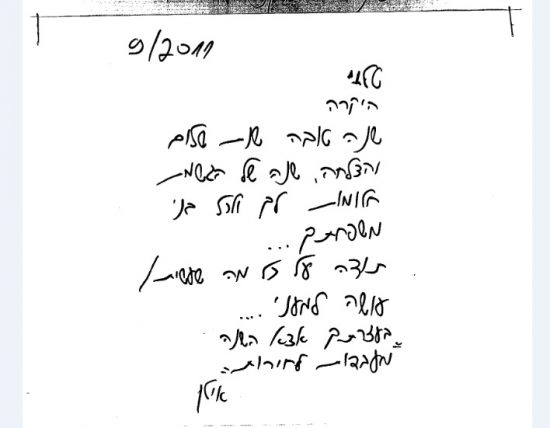 9/2011
טלצי
היקרה
שנה טובה שנת שלום
והצלחה, שנה של הגשמת
חלומות לך ולכל בני
משפחתך ...
תודה על כל מה שעשית/
עושה למעני ....
בעזרתך אצא השנה
"מעבדות לחירות"
איתן